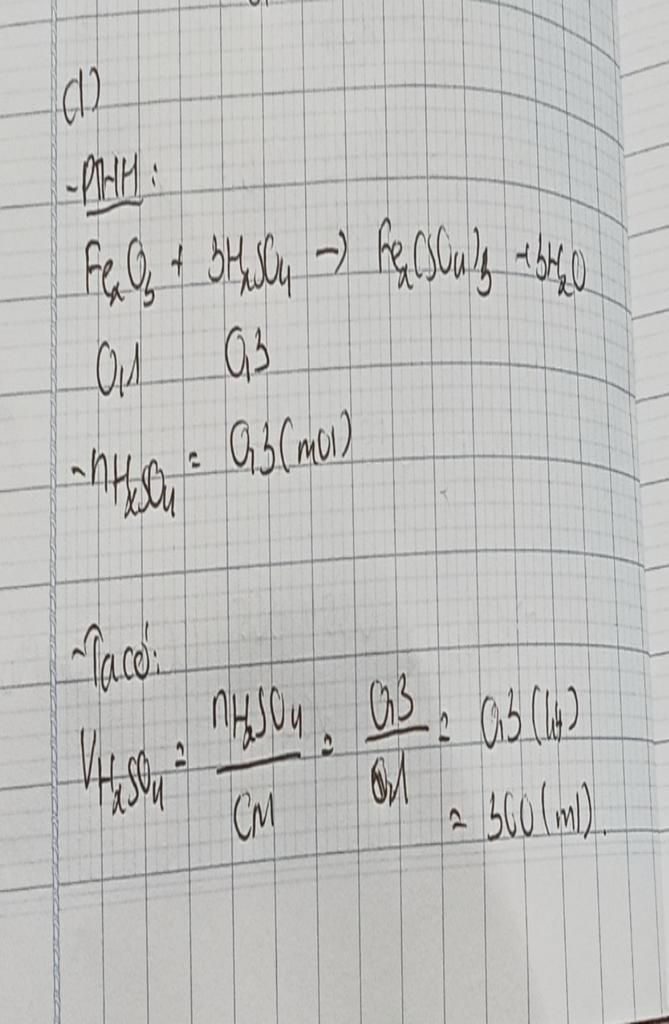 d)
- PTHH:
Fe₂O₃ + 3H₂SO₄ → Fe₂(SO₄)₃ + 3H₂O
0,1 0,3
- nH₂SO₄ = 0,3 (mol)
- Ta có:
VH₂SO₄ = nH₂SO₄ / CM = 0,3 / 1 = 0,3 (lít)
= 300 (ml).